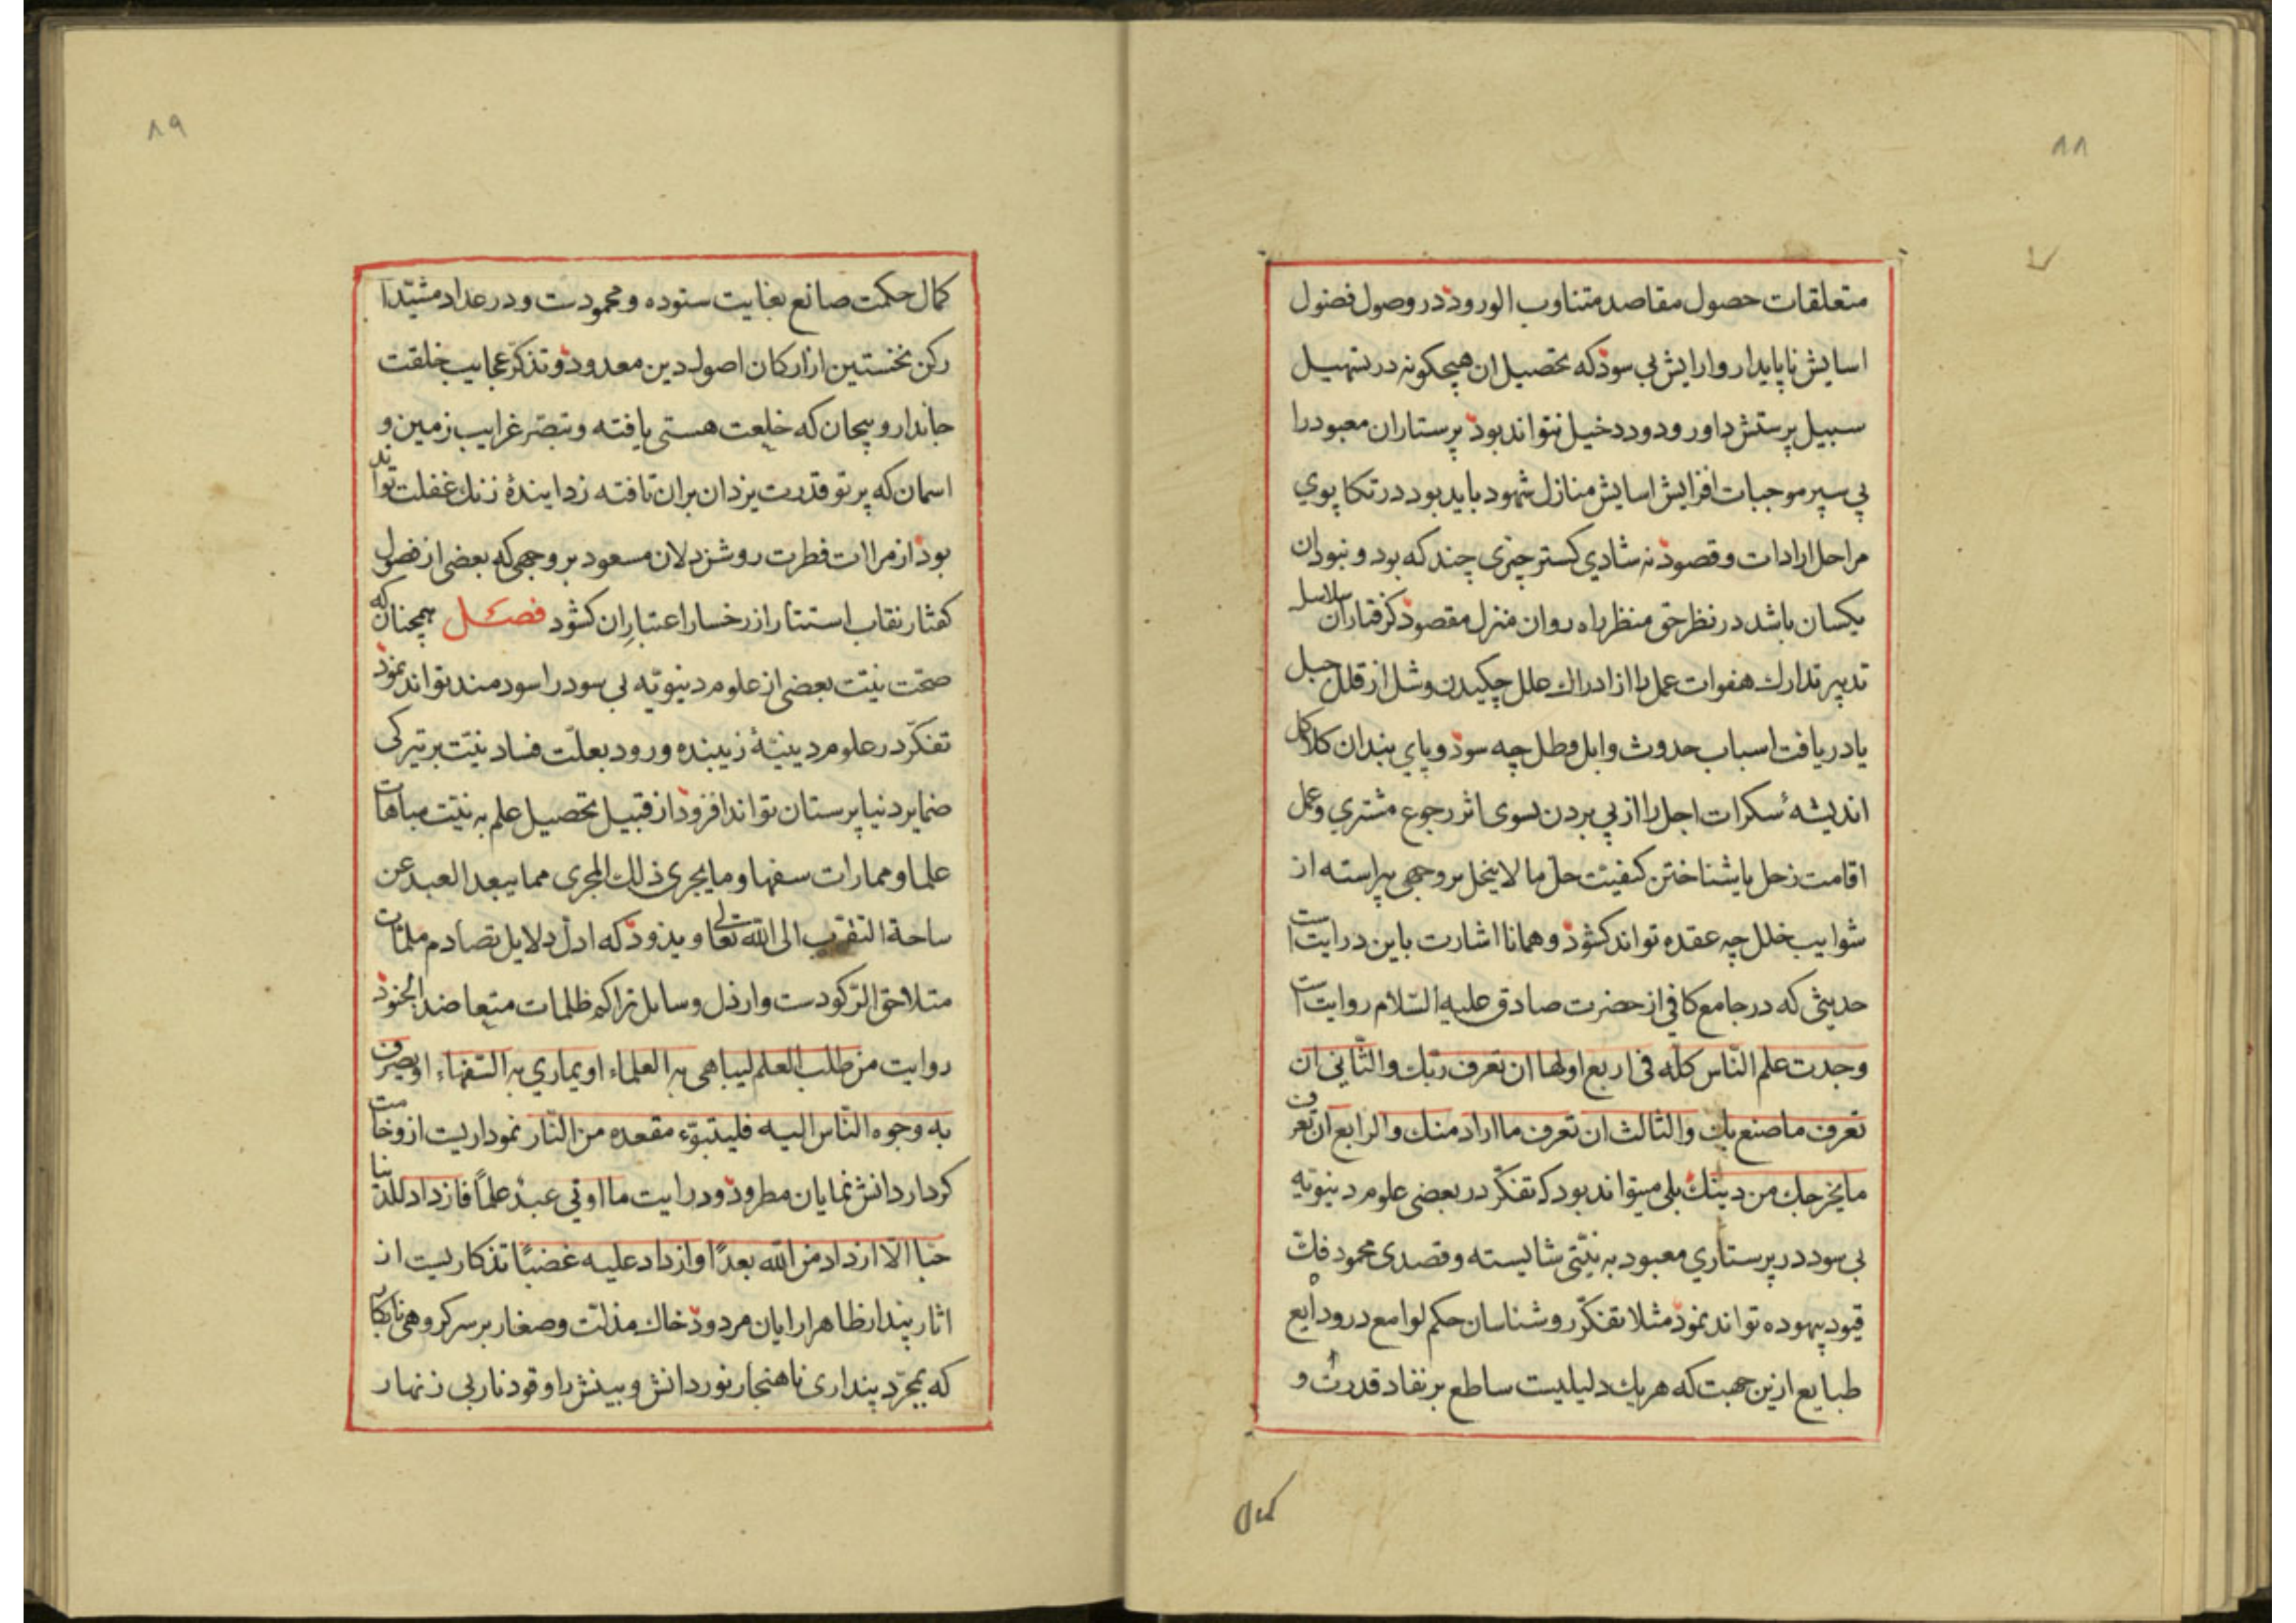 ٨٨
متعلقات حصول مقاصد متناوب الورود در وصول فضول
اسایش ناپایدار وارایش بی سود که تحصیل ان هیچکونه در تسهیل
سبیل پرستش داور ودود دخیل نتواند بود پرستاران معبود را
پی سپر موجبات افزایش اسایش منازل شهود باید بود در تکاپوی
مراحل ارادات و قصود نه شادی کستر چیزی چند که بود و نبود ان
یکسان باشد در نظر حق منظر راه روان منزل مقصود کرفتاران سلاسل
تدبیر تدارك هفوات عمل را از ادراك علل چکیدن وشل از قلل جبل
یا دریافت اسباب حدوث وابل وطل چه سود و پای بندان کلاکل
اندیشهٔ سکرات اجل را از پی بردن بسوی اثر رجوع مشتری وعمل
اقامت زحل یا شناختن کیفیت حل ما لا ینحل بر وجهی پیراسته از
شوایب خلل چه عقده تواند کشود و همانا اشارت باین درایت است
حدیثی که در جامع کافی از حضرت صادق علیه السّلام روایت است
وجدت علم النّاس کلّه فی اربع اولها ان تعرف ربّك والثّانی ان
تعرف ما صنع بك والثالث ان تعرف ما اراد منك والرابع ان تعرف
ما یخرجك من دینك بلی میتواند بود که تفکّر در بعضی علوم دنیویّه
بی سود در پرستاری معبود به نیّتی شایسته و قصدی محمود فكّ
قیود بیهوده تواند نمود مثلا تفکّر روشناسان حکم لوامع در ودایع
طبایع ازین جهت که هر یك دلیلیست ساطع بر نفاد قدرت و
٨٩
کمال حکمت صانع بغایت ستوده و محمودست و در عداد مشیّدات
رکن نخستین از ارکان اصول دین معدود و تذکّر عجایب خلقت
جاندار و بیجان که خلعت هستی یافته و تبصّر غرایب زمین و
اسمان که پرتو قدرت یزدان بران تافته زدایندهٔ زنك غفلت تواند
بود از مراات فطرت روشن دلان مسعود بر وجهی که بعضی از فصول
کفتار نقاب استتار از رخسار اعتبار ان کشود فصل همچنانکه
صحّت نیّت بعضی از علوم دنیویّه بی سود را سودمند تواند نمود
تفکّر در علوم دینیّهٔ زیبنده ورود بعلّت فساد نیّت بر تیرکی
ضمایر دنیا پرستان تواند افزود از قبیل تحصیل علم به نیّت مباهات
علما و ممارات سفها و ما یجری ذلك المجری مما یبعد العبد عن
ساحة التقرب الی الله تعالی و یذود که ادلّ دلایل تصادم ملمّات
متلاحق الرکودست و ارذل وسایل تراکم ظلمات متعاضد الجنود
روایت من طلب العلم لیباهی به العلماء او یماری به السّفهاء او یصرف
به وجوه النّاس الیه فلیتبوّء مقعده من النّار نموداریست از وخامت
کردار دانش نمایان مطرود و درایت ما اوتی عبدٌ علماً فازداد للدّنیا
حبّا الّا ازداد من الله بعداً وازداد علیه غضبًا تذکاریست از
اثار پندار ظاهر ارایان مردود خاك مذلّت و صغار بر سر کروهی نابکار
که بمجرّد پنداری ناهنجار نور دانش و بینش را وقود نار بی زنهار